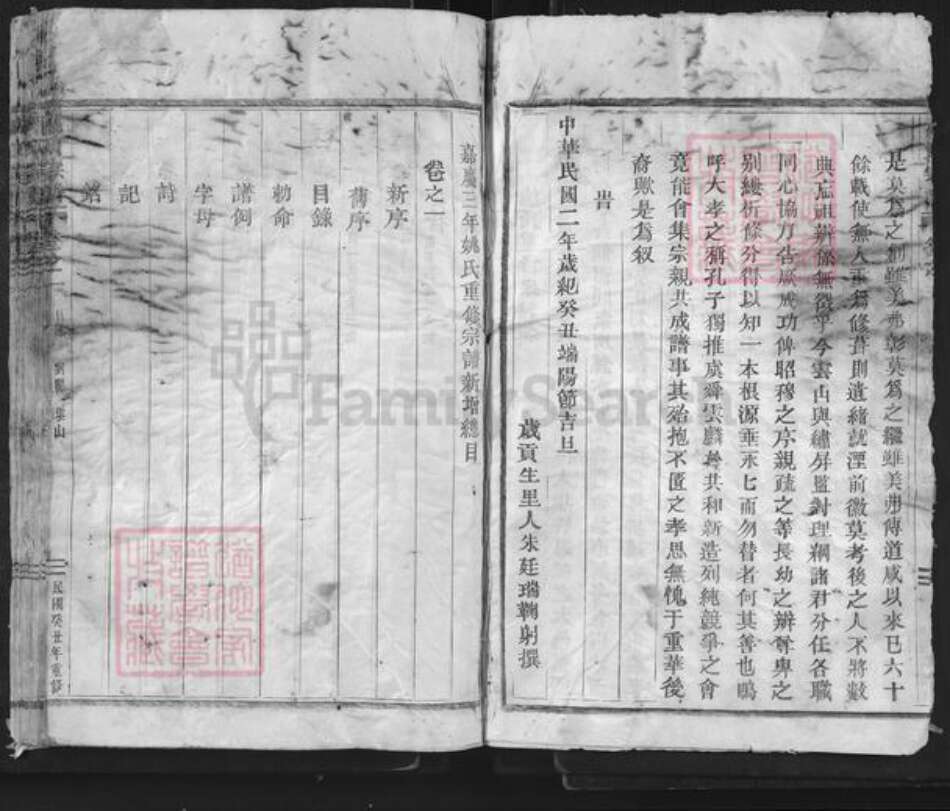 是莫爲之創雖美弗彰莫爲之繼雖美弗傳道咸以來已六十
餘載使無人重爲修葺則遺緒就湮前徽莫考後之人不將數
典忘祖辨陳無徵乎今雲山與繡屏監封理綱諸君分任各職
同心協力告厥成功俾昭穆之序親疏之等長幼之辨尊卑之
別縷析條分得以知一本根源垂永七而勿替者何其善也嗚
呼大孝之稱孔子獨推虞舜雲麟等共和新造列純競爭之會
竟能會集宗親共成譜事其殆抱不匱之孝思無愧于重華後
裔歟是爲叙
旹
中華民國二年歲紀癸丑端陽節吉旦
歲貢生里人朱廷瑞鞠躬撰
嘉慶三年姚氏重修宗譜新增總目
卷之一
新序
舊序
目錄
勅命
譜例
字母
詩
記
民國癸丑年重修
FamilySearch